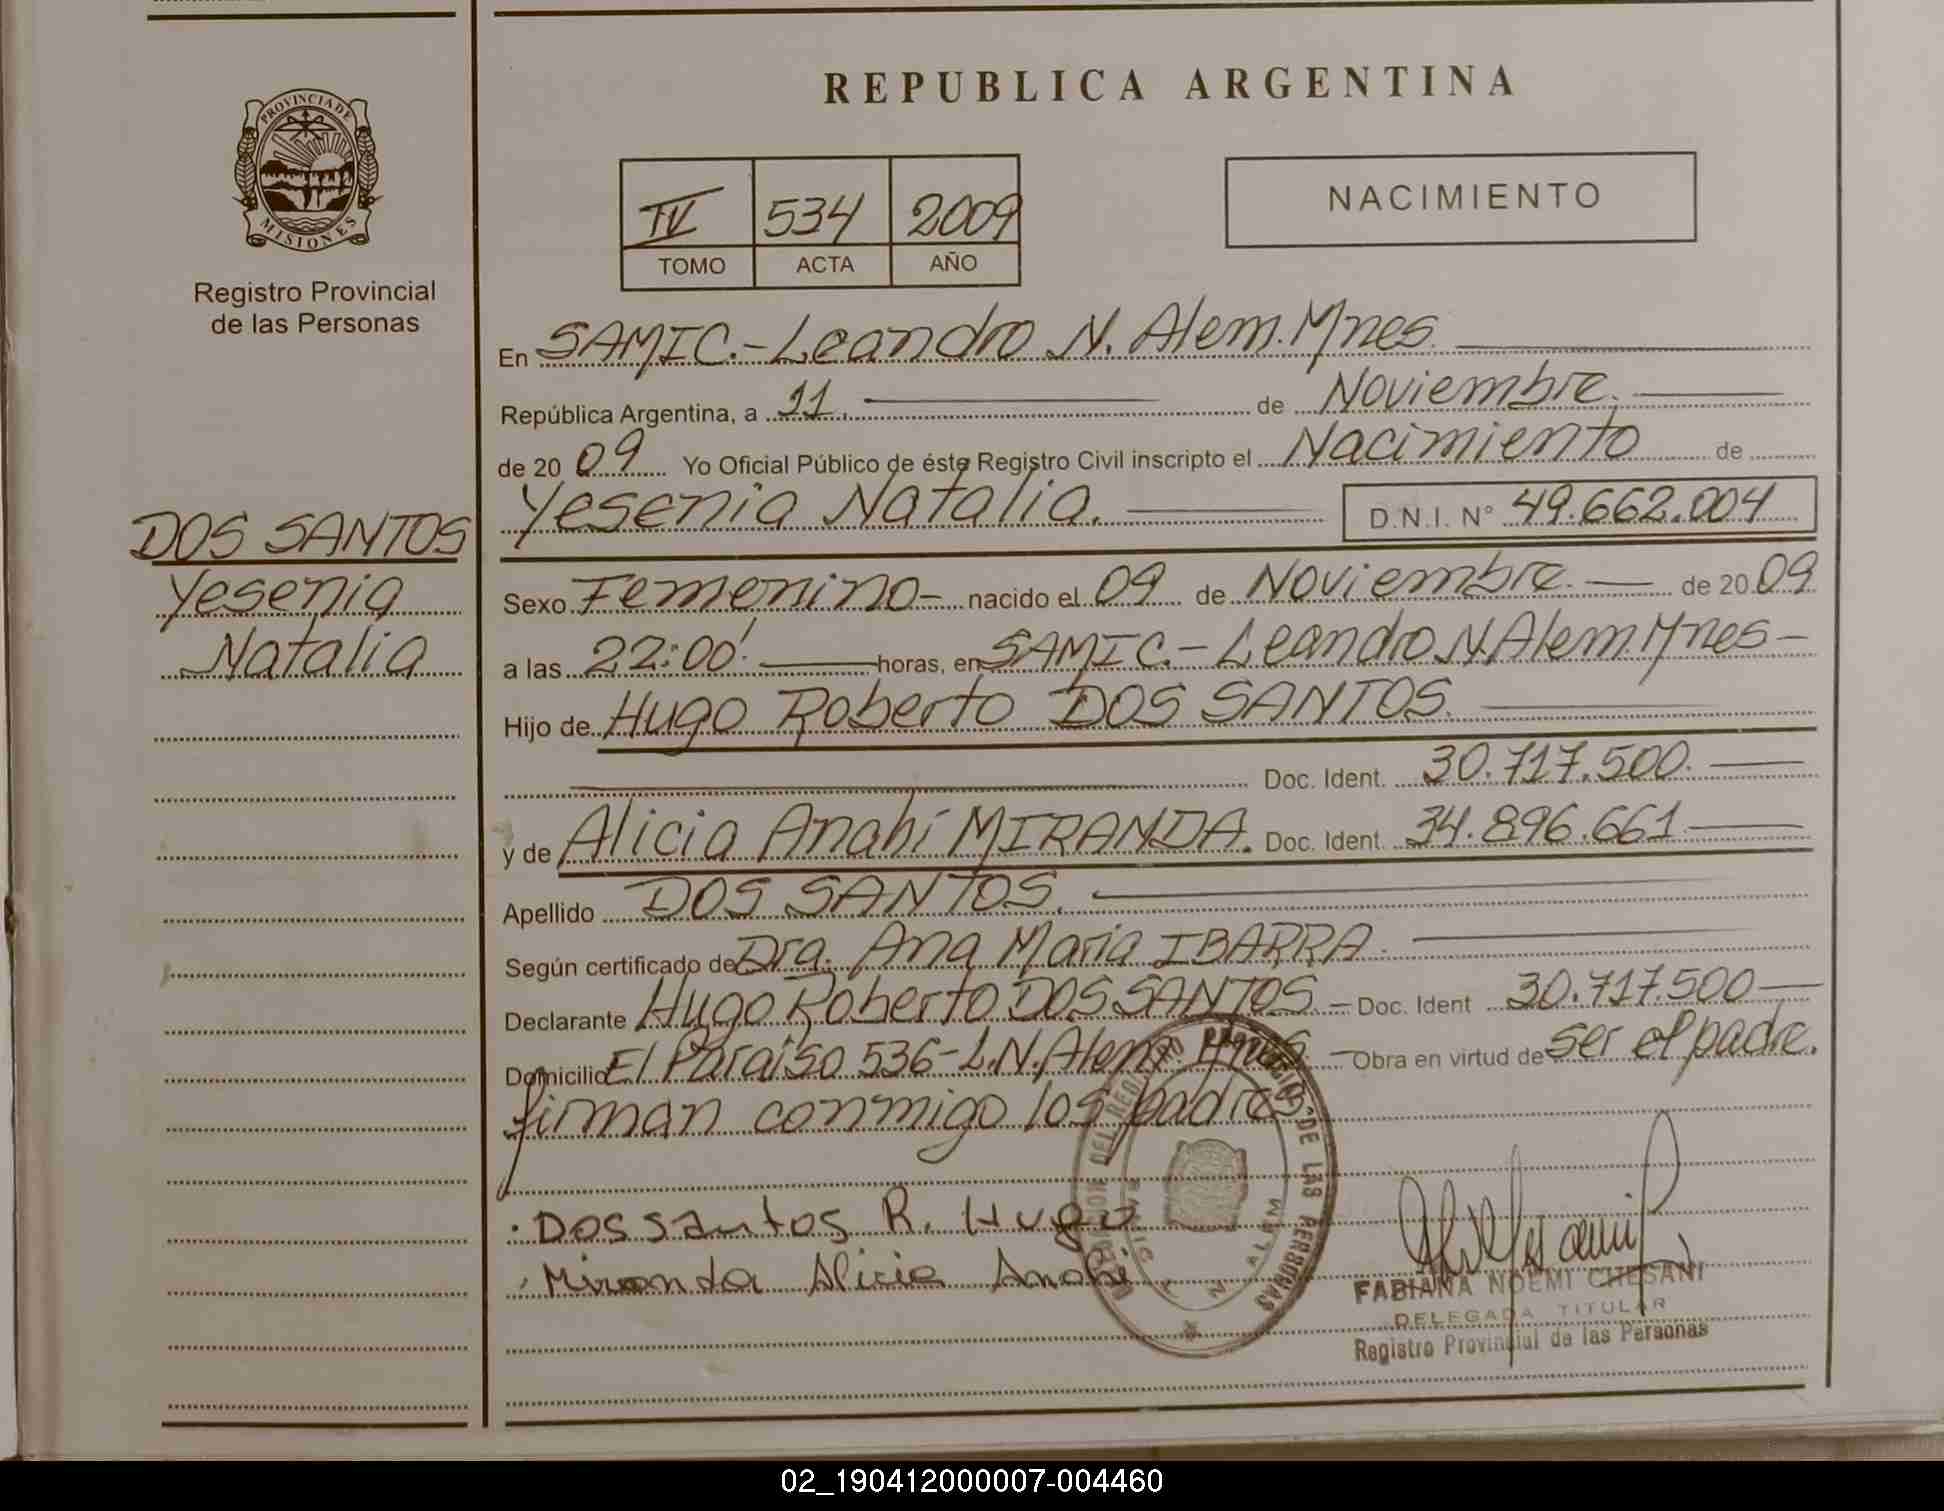 PROVINCIA DE
MISIONES
Registro Provincial
de las Personas
DOS SANTOS
Yesenia
Natalia
REPUBLICA ARGENTINA
IV 534 2009
TOMO ACTA AÑO
NACIMIENTO
En SAMIC.-Leandro N. Alem. Mnes.
República Argentina, a 11. de Noviembre.
de 2009 Yo Oficial Público de éste Registro Civil inscripto el Nacimiento de
Yesenia Natalia. D.N.I. N° 49.662.004
Sexo Femenino- nacido el 09 de Noviembre. de 2009
a las 22:00'. horas, en SAMIC.-Leandro N. Alem. Mnes-
Hijo de Hugo Roberto DOS SANTOS.
Doc. Ident. 30.717.500.
y de Alicia Anahí MIRANDA. Doc. Ident. 34.896.661
Apellido DOS SANTOS.
Según certificado de Dra. Ana Maria IBARRA.
Declarante Hugo Roberto DOS SANTOS - Doc. Ident 30.717.500
Domicilio El Paraiso 536-L.N. Alem. Mnes. - Obra en virtud de ser el padre.
firman conmigo los padres
. Dossantos R. Hugo
. Miranda Alicia Anahi
DEL REGISTRO PROVINCIAL DE LAS PERSONAS
N ALEM
FABIANA NOEMI CHESANI
DELEGADA TITULAR
Registro Provincial de las Personas
02_190412000007-004460